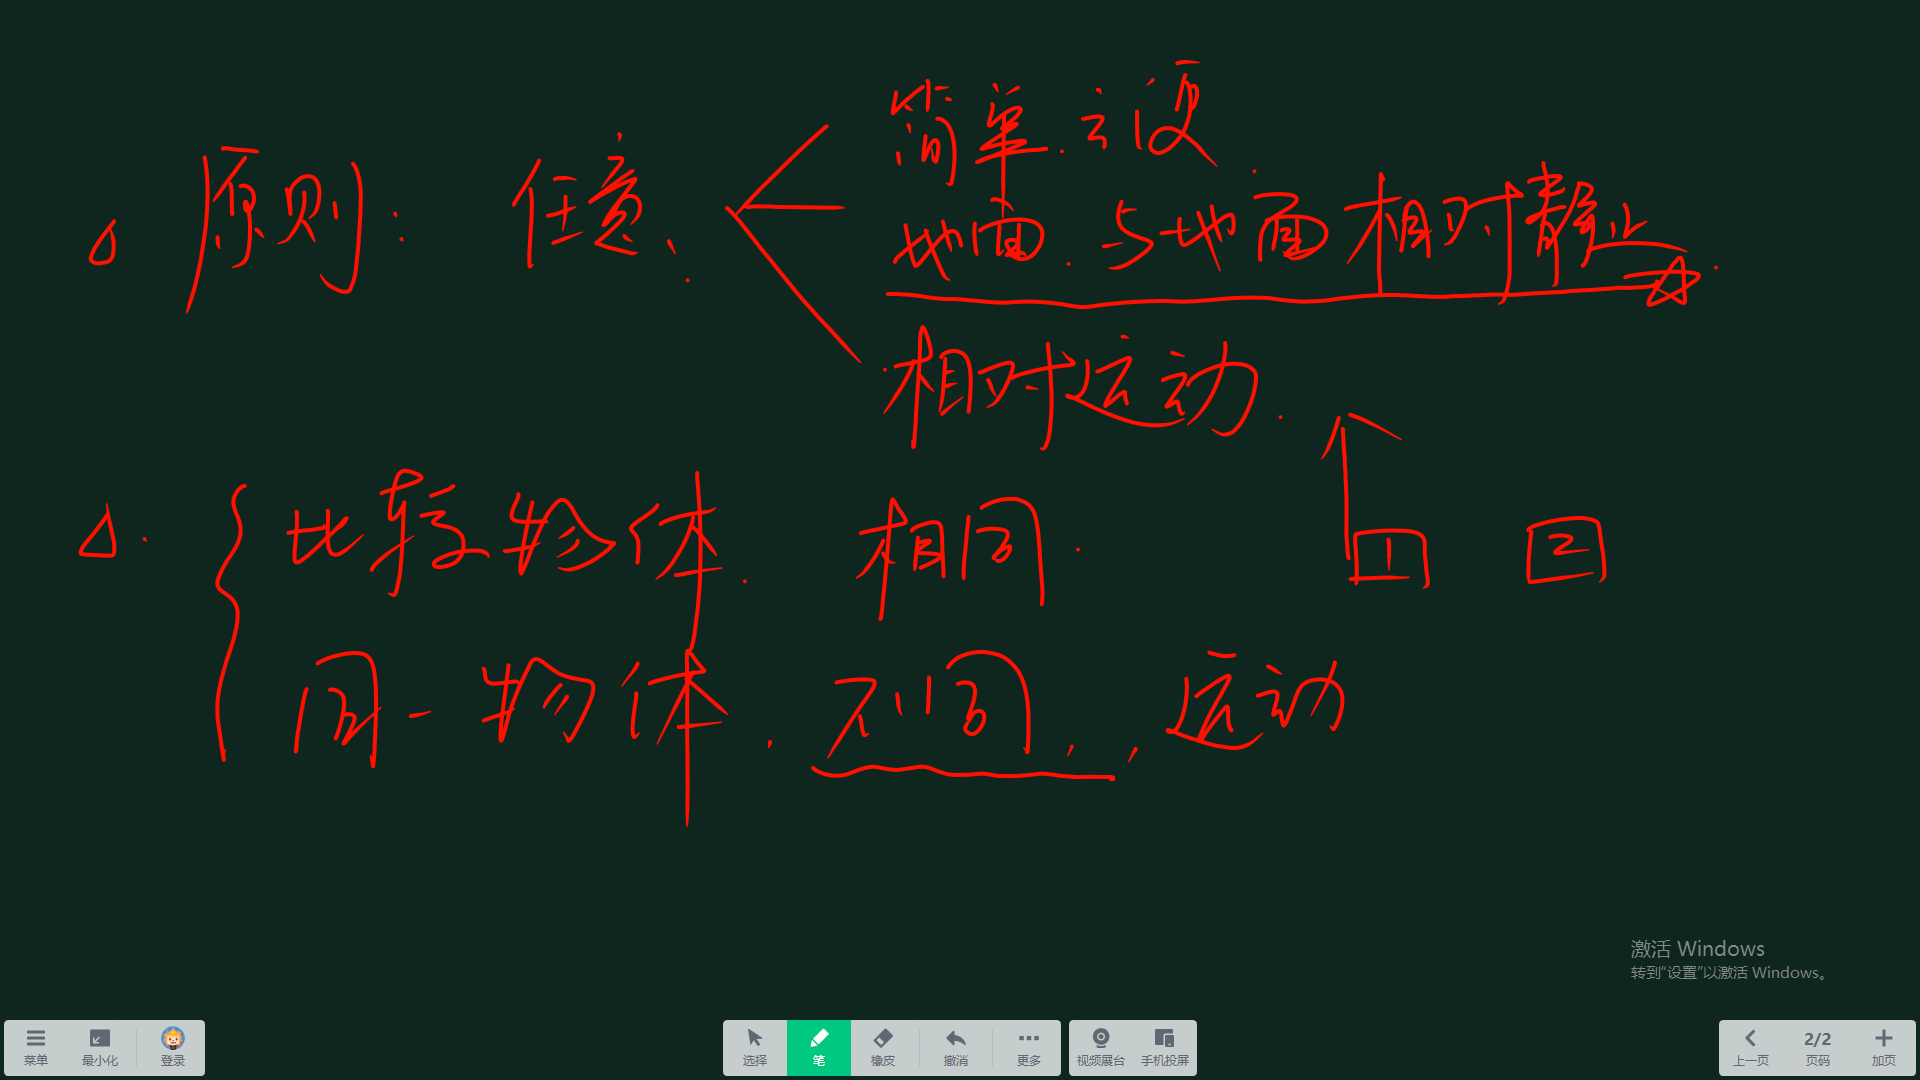 简单.方便.
原则: 任意.
地面.与地面相对静止.
相对运动.
比较物体.相同.
1 2
同一物体.不同.,运动
激活 Windows
转到“设置”以激活 Windows。
菜单 最小化 登录 选择 笔 橡皮 撤消 更多 视频展台 手机投屏 上一页 2/2 页码 加页